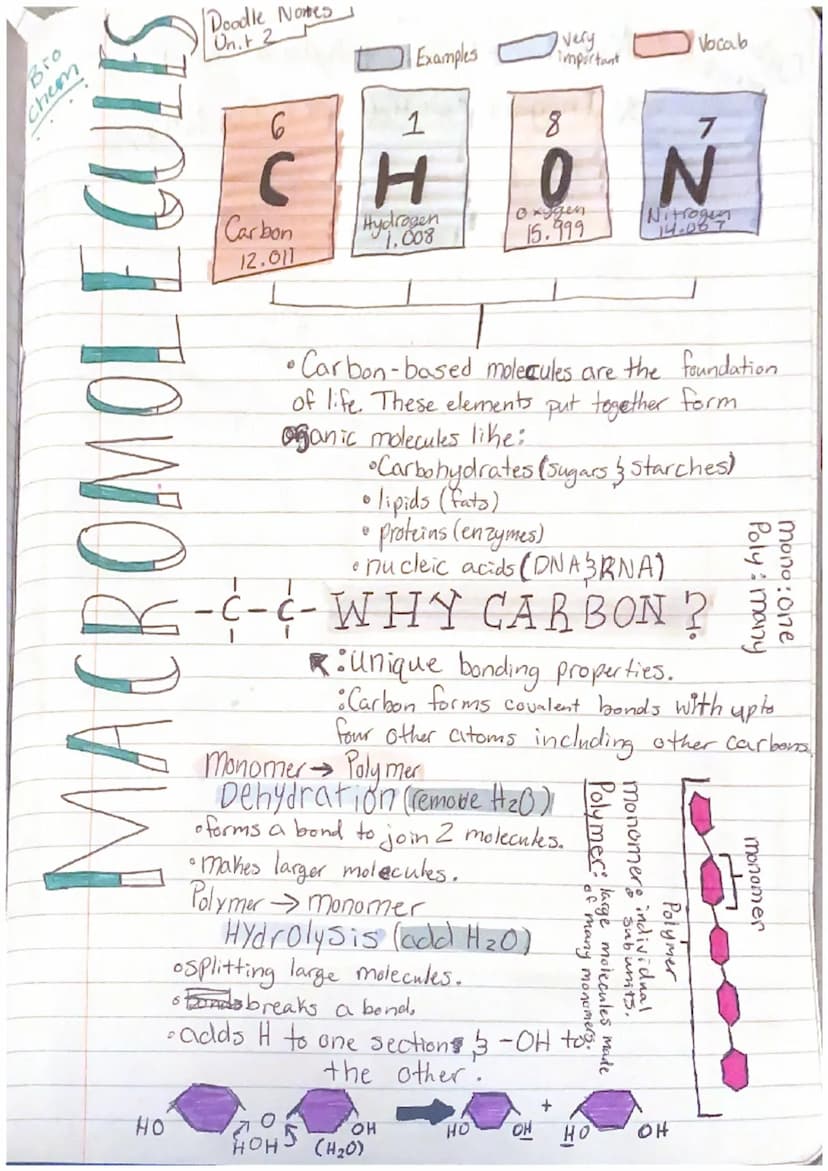 Doodle Notes
Unit 2
Bio
Chem
Examples
very
important
Vocab
MACROMOLECULES
6
C
Carbon
12.011
1
H
Hydrogen
1.008
8
O
Oxygen
15.999
7
N
Nitrogen
14.007
• Carbon-based molecules are the foundation
of life. These elements put together form
organic molecules like:
• Carbohydrates (sugars & starches)
• lipids (fats)
• proteins (enzymes)
• nucleic acids (DNA & RNA)
mono: one
Poly: many
-C-C- WHY CARBON?
: Unique bonding properties.
: Carbon forms covalent bonds with upto
four other atoms including other carbons
Monomer → Polymer
Dehydration (remove H2O)
• forms a bond to join 2 molecules.
• makes larger molecules.
Polymer → monomer
Hydrolysis (add H2O)
• splitting large molecules.
• breaks a bond.
• adds H to one section & -OH to
the other.
monomer: individual
subunits.
Polymer: large molecules made
of many monomers.
Polymer
monomer
HO O OH
HOH (H2O)
HO OH + HO OH